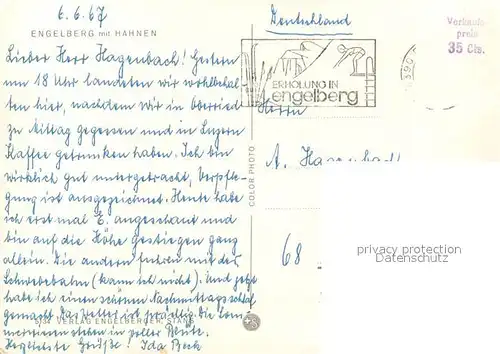 6.6.67
ENGELBERG mit HAHNEN
Lieber Herr Hagenbach! Gestern
um 18 Uhr landeten wir wohlbehal-
ten hier, nachdem wir in Oberried
zu Mittag gegessen und in Luzern
Kaffee getrunken haben. Ich bin
wirklich gut untergebracht, Verpfle-
gung ist ausgezeichnet. Heute habe
ich erst mal E. angeschaut und
bin auf die Höhe gestiegen ganz
allein. Die andern fuhren mit der
Schwebebahn (kann ich nicht). Und jetzt
habe ich einen schönen Nachmittagsschlaf
gemacht. Das Wetter ist
stehen in voller Blüte.
Herzlichste Grüße! Ida Beck
VERLAG ENGELBERGER, STANS
COLOR-PHOTO
Deutschland
ERHOLUNG IN
engelberg
Verkaufs-
preis
35 Cts.
Herrn
A.
68
privacy protection
www.delcampe.net